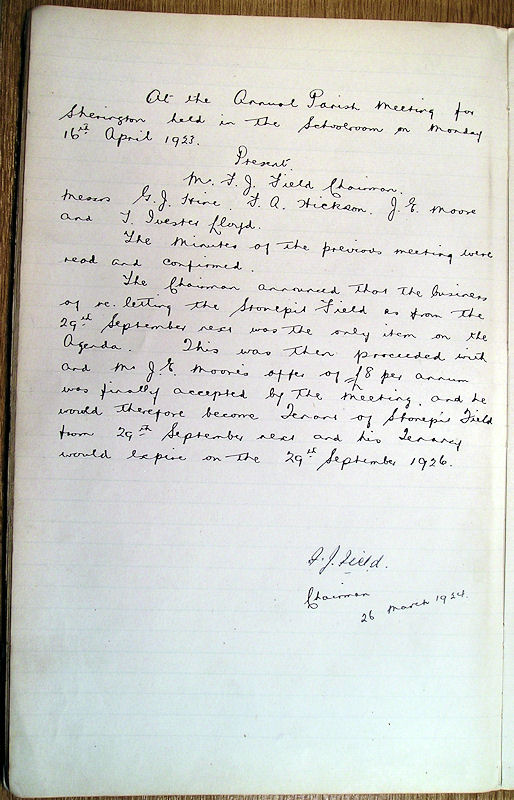 At the Annual Parish Meeting for
Sherington held in the Schoolroom on Monday
16th April 1923.
Present
Mr. F. J. Field Chairman.
Messrs G. J. Hine. F. A. Hickson. J. E. Moore
and T. Ivester Lloyd.
The Minutes of the previous meeting were
read and confirmed.
The Chairman announced that the business
of re-letting the Stonepit Field as from the
29th September next was the only item on the
Agenda. This was then proceeded with
and Mr J. E. Moore's offer of £8 per annum
was finally accepted by the Meeting, and he
would therefore become Tenant of Stonepit Field
from 29th September next and his Tenancy
would expire on the 29th September 1926.
F. J. Field.
Chairman
26 March 1924.